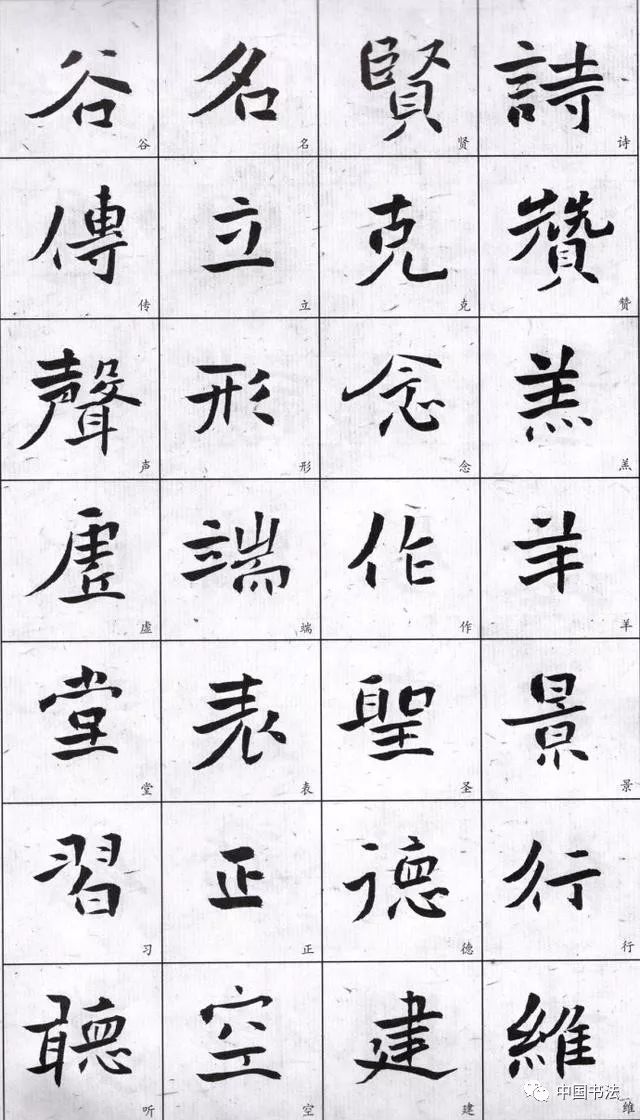 詩贊羔羊景行維
诗赞羔羊景行
賢克念作聖德建
贤克念作圣德建
名立形端表正空
名立形端表正空
谷傳聲虛堂習聽
谷传声虚堂习听
中国书法